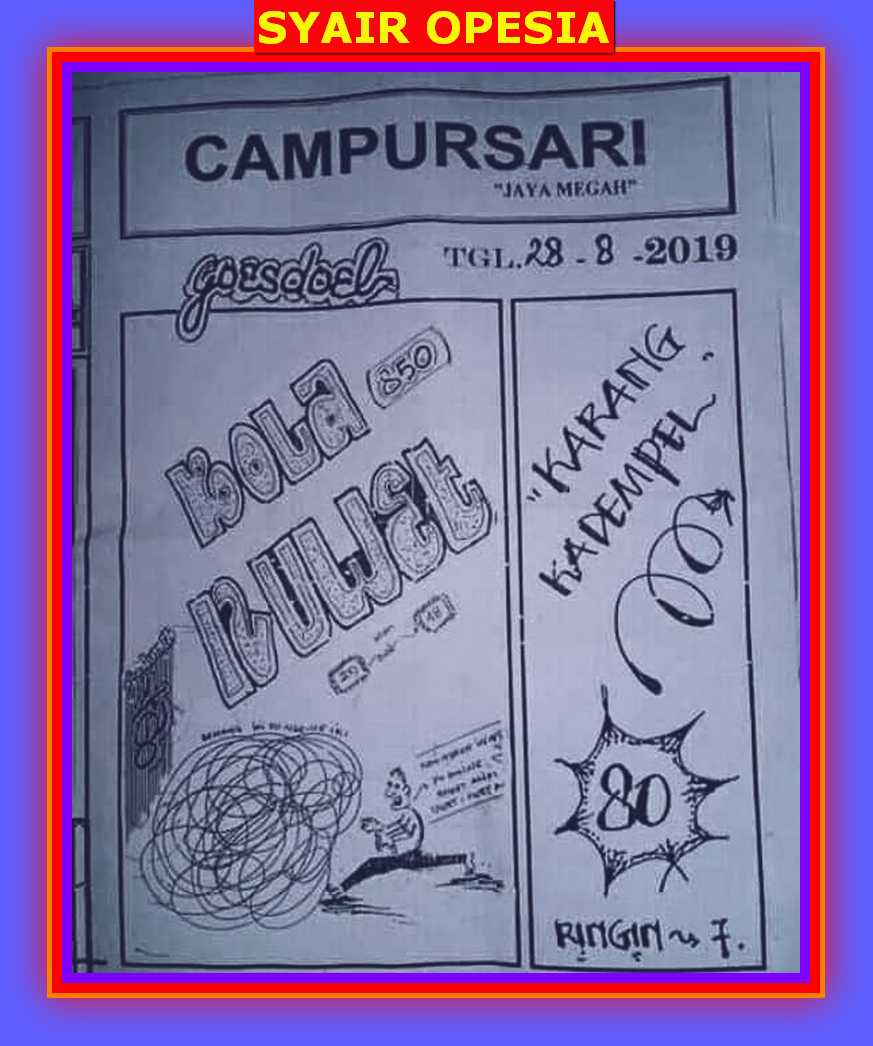 SYAIR OPESIA
CAMPURSARI
"JAYA MEGAH"
goesdoel
TGL. 28 - 8 - 2019
BOLA 850
RUWET
18
"KARANG
KADEMPEL
80
RINGIN ~> 7.